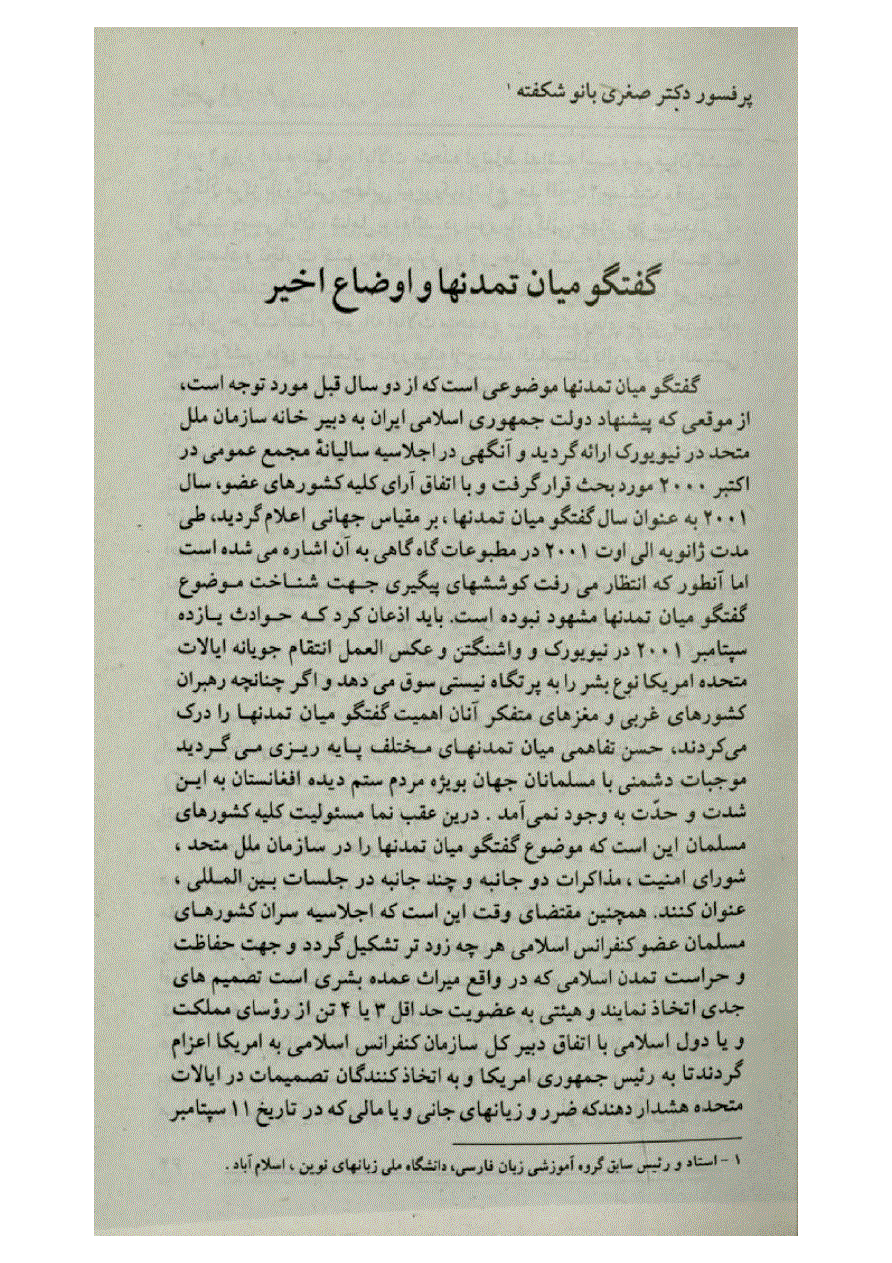 پرفسور دکتر صغری بانو شکفته ۱
گفتگو میان تمدنها و اوضاع اخیر
گفتگو میان تمدنها موضوعی است که از دو سال قبل مورد توجه است،
از موقعی که پیشنهاد دولت جمهوری اسلامی ایران به دبیر خانه سازمان ملل
متحد در نیویورک ارائه گردید و آنگهی در اجلاسیه سالیانۀ مجمع عمومی در
اکتبر ۲۰۰۰ مورد بحث قرار گرفت و با اتفاق آرای کلیه کشورهای عضو، سال
۲۰۰۱ به عنوان سال گفتگو میان تمدنها ، بر مقیاس جهانی اعلام گردید، طی
مدت ژانویه الی اوت ۲۰۰۱ در مطبوعات گاه گاهی به آن اشاره می شده است
اما آنطور که انتظار می رفت کوششهای پیگیری جهت شناخت موضوع
گفتگو میان تمدنها مشهود نبوده است. باید اذعان کرد که حوادث یازده
سپتامبر ۲۰۰۱ در نیویورک و واشنگتن و عکس العمل انتقام جویانه ایالات
متحده امریکا نوع بشر را به پرتگاه نیستی سوق می دهد و اگر چنانچه رهبران
کشورهای غربی و مغزهای متفکر آنان اهمیت گفتگو میان تمدنها را درک
می‌کردند، حسن تفاهمی میان تمدنهای مختلف پایه ریزی می گردید
موجبات دشمنی با مسلمانان جهان بویژه مردم ستم دیده افغانستان به این
شدت و حدّت به وجود نمی‌آمد . درین عقب نما مسئولیت کلیه کشورهای
مسلمان این است که موضوع گفتگو میان تمدنها را در سازمان ملل متحد ،
شورای امنیت ، مذاکرات دو جانبه و چند جانبه در جلسات بین المللی ،
عنوان کنند. همچنین مقتضای وقت این است که اجلاسیه سران کشورهای
مسلمان عضو کنفرانس اسلامی هر چه زود تر تشکیل گردد و جهت حفاظت
و حراست تمدن اسلامی که در واقع میراث عمده بشری است تصمیم های
جدی اتخاذ نمایند و هیئتی به عضویت حد اقل ۳ یا ۴ تن از رؤسای مملکت
و یا دول اسلامی با اتفاق دبیر کل سازمان کنفرانس اسلامی به امریکا اعزام
گردند تا به رئیس جمهوری امریکا و به اتخاذ کنندگان تصمیمات در ایالات
متحده هشدار دهند که ضرر و زیانهای جانی و یا مالی که در تاریخ ۱۱ سپتامبر
۱ - استاد و رئیس سابق گروه آموزشی زبان فارسی، دانشگاه ملی زبانهای نوین ، اسلام آباد .